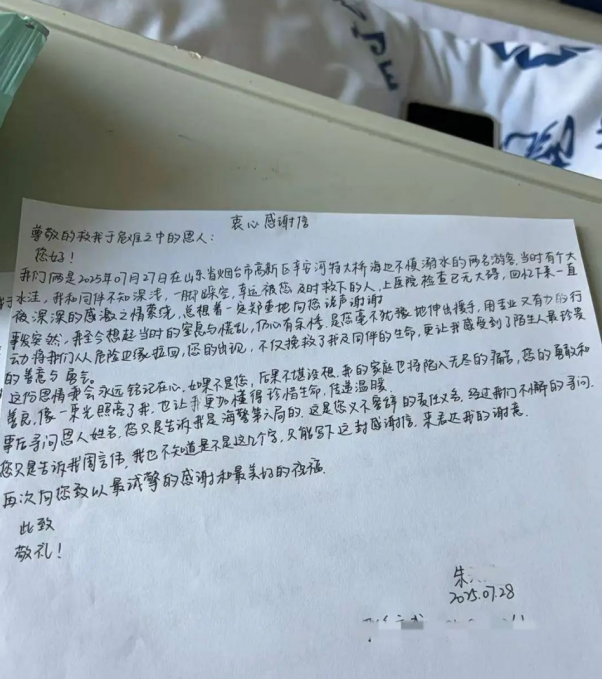 衷心感谢信
尊敬的救我于危难之中的恩人：
您好！
我们俩是2025年07月27日在山东省烟台市高新区辛安河特大桥海边不慎溺水的两名游客，当时有个大
水洼，我和同伴不知深浅，一脚踩空，幸运被您及时救下的人，上医院检查已无大碍，回忆下来一直
被深深的感激之情萦绕，总想着一定郑重地向您说声谢谢！
事发突然，我至今想起当时的窒息与慌乱，仍心有余悸，是您毫不犹豫地伸出援手，用专业又有力的行
动将我们从危险边缘拉回，您的出现，不仅挽救了我及同伴的生命，更让我感受到了陌生人最珍贵
的善意与勇气。
这份恩情我会永远铭记在心，如果不是您，后果不堪设想，我的家庭也将陷入无尽的痛苦，您的勇敢和
善良，像一束光照亮了我，也让我更加懂得珍惜生命，传递温暖。
事后寻问恩人姓名，您只是告诉我是海警第六局的，这是您义不容辞的责任义务，经过我们不懈的寻问，
您只是告诉我周言伟，我也不知道是不是这几个字，只能写下这封感谢信，来表达我的谢意。
再次向您致以最诚挚的感谢和最美好的祝福。
此致
敬礼！
朱
2025.07.28